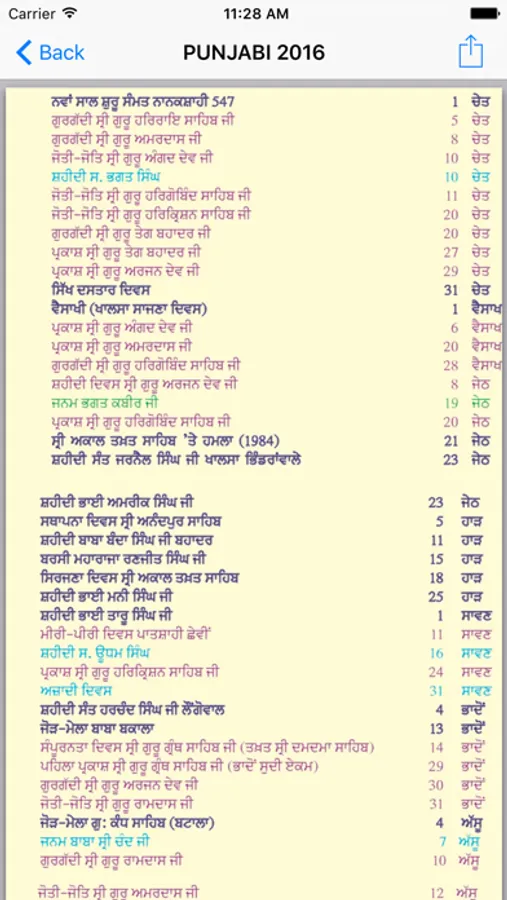 Carrier 11:28 AM
Back PUNJABI 2016
ਨਵਾਂ ਸਾਲ ਸ਼ੁਰੂ ਸੰਮਤ ਨਾਨਕਸ਼ਾਹੀ 547 1 ਚੇਤ
ਗੁਰਗੱਦੀ ਸ੍ਰੀ ਗੁਰੂ ਹਰਿਰਾਇ ਸਾਹਿਬ ਜੀ 5 ਚੇਤ
ਗੁਰਗੱਦੀ ਸ੍ਰੀ ਗੁਰੂ ਅਮਰਦਾਸ ਜੀ 8 ਚੇਤ
ਜੋਤੀ-ਜੋਤਿ ਸ੍ਰੀ ਗੁਰੂ ਅੰਗਦ ਦੇਵ ਜੀ 10 ਚੇਤ
ਸ਼ਹੀਦੀ ਸ. ਭਗਤ ਸਿੰਘ 10 ਚੇਤ
ਜੋਤੀ-ਜੋਤਿ ਸ੍ਰੀ ਗੁਰੂ ਹਰਿਗੋਬਿੰਦ ਸਾਹਿਬ ਜੀ 11 ਚੇਤ
ਜੋਤੀ-ਜੋਤਿ ਸ੍ਰੀ ਗੁਰੂ ਹਰਿਕ੍ਰਿਸ਼ਨ ਸਾਹਿਬ ਜੀ 20 ਚੇਤ
ਗੁਰਗੱਦੀ ਸ੍ਰੀ ਗੁਰੂ ਤੇਗ ਬਹਾਦਰ ਜੀ 20 ਚੇਤ
ਪ੍ਰਕਾਸ਼ ਸ੍ਰੀ ਗੁਰੂ ਤੇਗ ਬਹਾਦਰ ਜੀ 27 ਚੇਤ
ਪ੍ਰਕਾਸ਼ ਸ੍ਰੀ ਗੁਰੂ ਅਰਜਨ ਦੇਵ ਜੀ 29 ਚੇਤ
ਸਿੱਖ ਦਸਤਾਰ ਦਿਵਸ 31 ਚੇਤ
ਵੈਸਾਖੀ (ਖਾਲਸਾ ਸਾਜਣਾ ਦਿਵਸ) 1 ਵੈਸਾਖ
ਪ੍ਰਕਾਸ਼ ਸ੍ਰੀ ਗੁਰੂ ਅੰਗਦ ਦੇਵ ਜੀ 6 ਵੈਸਾਖ
ਪ੍ਰਕਾਸ਼ ਸ੍ਰੀ ਗੁਰੂ ਅਮਰਦਾਸ ਜੀ 20 ਵੈਸਾਖ
ਗੁਰਗੱਦੀ ਸ੍ਰੀ ਗੁਰੂ ਹਰਿਗੋਬਿੰਦ ਸਾਹਿਬ ਜੀ 28 ਵੈਸਾਖ
ਸ਼ਹੀਦੀ ਦਿਵਸ ਸ੍ਰੀ ਗੁਰੂ ਅਰਜਨ ਦੇਵ ਜੀ 8 ਜੇਠ
ਜਨਮ ਭਗਤ ਕਬੀਰ ਜੀ 19 ਜੇਠ
ਪ੍ਰਕਾਸ਼ ਸ੍ਰੀ ਗੁਰੂ ਹਰਿਗੋਬਿੰਦ ਸਾਹਿਬ ਜੀ 20 ਜੇਠ
ਸ੍ਰੀ ਅਕਾਲ ਤਖ਼ਤ ਸਾਹਿਬ 'ਤੇ ਹਮਲਾ (1984) 21 ਜੇਠ
ਸ਼ਹੀਦੀ ਸੰਤ ਜਰਨੈਲ ਸਿੰਘ ਜੀ ਖਾਲਸਾ ਭਿੰਡਰਾਂਵਾਲੇ 23 ਜੇਠ
ਸ਼ਹੀਦੀ ਭਾਈ ਅਮਰੀਕ ਸਿੰਘ ਜੀ 23 ਜੇਠ
ਸਥਾਪਨਾ ਦਿਵਸ ਸ੍ਰੀ ਅਨੰਦਪੁਰ ਸਾਹਿਬ 5 ਹਾੜ
ਸ਼ਹੀਦੀ ਬਾਬਾ ਬੰਦਾ ਸਿੰਘ ਜੀ ਬਹਾਦਰ 11 ਹਾੜ
ਬਰਸੀ ਮਹਾਰਾਜਾ ਰਣਜੀਤ ਸਿੰਘ ਜੀ 15 ਹਾੜ
ਸਿਰਜਣਾ ਦਿਵਸ ਸ੍ਰੀ ਅਕਾਲ ਤਖ਼ਤ ਸਾਹਿਬ 18 ਹਾੜ
ਸ਼ਹੀਦੀ ਭਾਈ ਮਨੀ ਸਿੰਘ ਜੀ 25 ਹਾੜ
ਸ਼ਹੀਦੀ ਭਾਈ ਤਾਰੂ ਸਿੰਘ ਜੀ 1 ਸਾਵਣ
ਮੀਰੀ-ਪੀਰੀ ਦਿਵਸ ਪਾਤਸ਼ਾਹੀ ਛੇਵੀਂ 11 ਸਾਵਣ
ਸ਼ਹੀਦੀ ਸ. ਊਧਮ ਸਿੰਘ 16 ਸਾਵਣ
ਪ੍ਰਕਾਸ਼ ਸ੍ਰੀ ਗੁਰੂ ਹਰਿਕ੍ਰਿਸ਼ਨ ਸਾਹਿਬ ਜੀ 24 ਸਾਵਣ
ਅਜ਼ਾਦੀ ਦਿਵਸ 31 ਸਾਵਣ
ਸ਼ਹੀਦੀ ਸੰਤ ਹਰਚੰਦ ਸਿੰਘ ਜੀ ਲੌਂਗੋਵਾਲ 4 ਭਾਦੋਂ
ਜੋੜ-ਮੇਲਾ ਬਾਬਾ ਬਕਾਲਾ 13 ਭਾਦੋਂ
ਸੰਪੂਰਨਤਾ ਦਿਵਸ ਸ੍ਰੀ ਗੁਰੂ ਗ੍ਰੰਥ ਸਾਹਿਬ ਜੀ (ਤਖ਼ਤ ਸ੍ਰੀ ਦਮਦਮਾ ਸਾਹਿਬ) 14 ਭਾਦੋਂ
ਪਹਿਲਾ ਪ੍ਰਕਾਸ਼ ਸ੍ਰੀ ਗੁਰੂ ਗ੍ਰੰਥ ਸਾਹਿਬ ਜੀ (ਭਾਦੋਂ ਸੁਦੀ ਏਕਮ) 29 ਭਾਦੋਂ
ਗੁਰਗੱਦੀ ਸ੍ਰੀ ਗੁਰੂ ਅਰਜਨ ਦੇਵ ਜੀ 30 ਭਾਦੋਂ
ਜੋਤੀ-ਜੋਤਿ ਸ੍ਰੀ ਗੁਰੂ ਰਾਮਦਾਸ ਜੀ 31 ਭਾਦੋਂ
ਜੋੜ-ਮੇਲਾ ਗੁ: ਕੰਧ ਸਾਹਿਬ (ਬਟਾਲਾ) 4 ਅੱਸੂ
ਜਨਮ ਬਾਬਾ ਸ੍ਰੀ ਚੰਦ ਜੀ 7 ਅੱਸੂ
ਗੁਰਗੱਦੀ ਸ੍ਰੀ ਗੁਰੂ ਰਾਮਦਾਸ ਜੀ 10 ਅੱਸੂ
ਜੋਤੀ-ਜੋਤਿ ਸ੍ਰੀ ਗੁਰੂ ਅਮਰਦਾਸ ਜੀ 12 ਅੱਸੂ